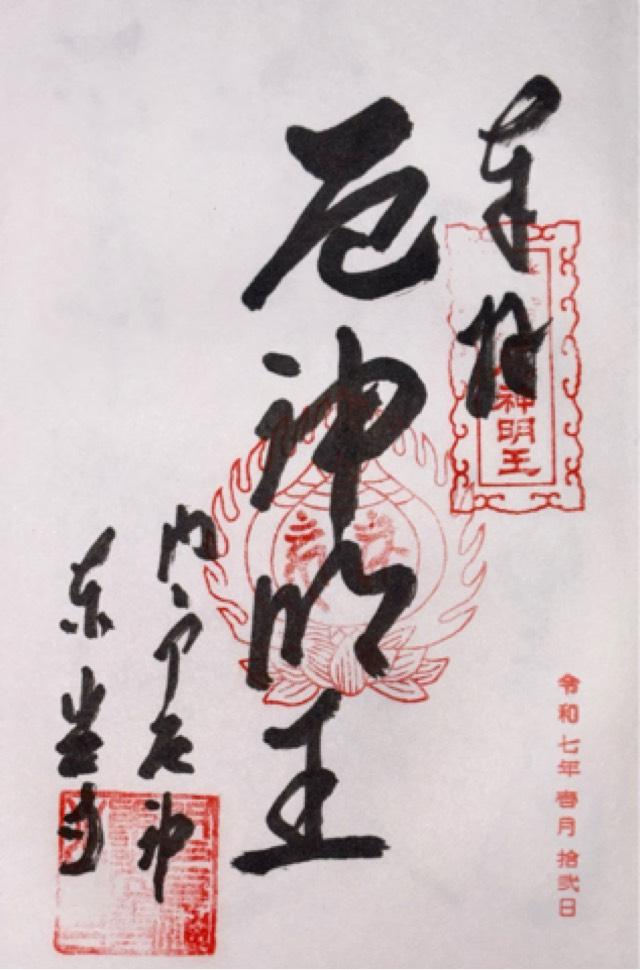 奉拝
神明王
令和七年 壱月 拾弐日
厄神明王
門戸厄神
東光寺